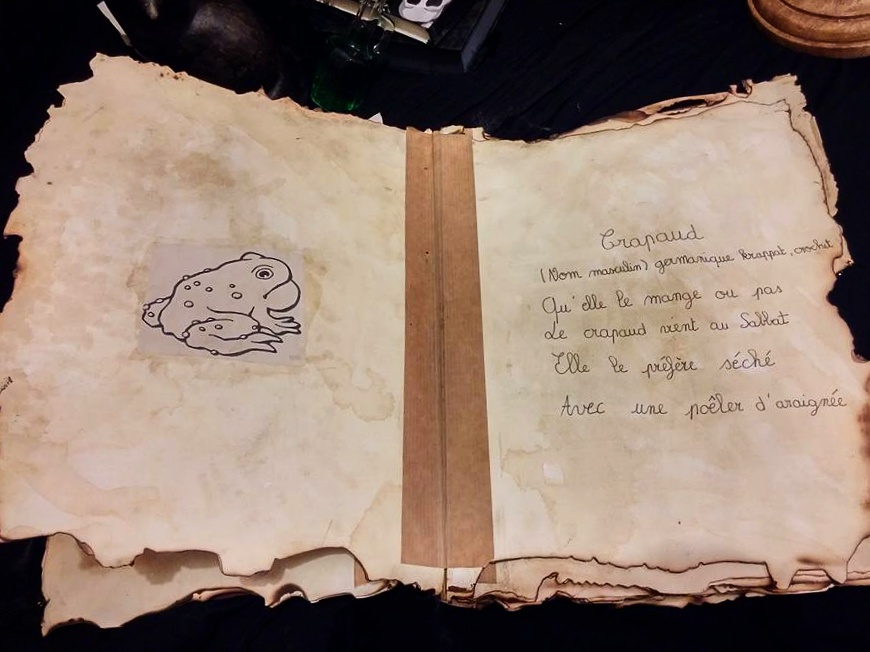 Crapaud
(Nom masculin) germanique krappat, crochet
Qu'elle le mange ou pas
Le crapaud vient au Sabbat
Elle le préfère séché
Avec une poêler d'araignée